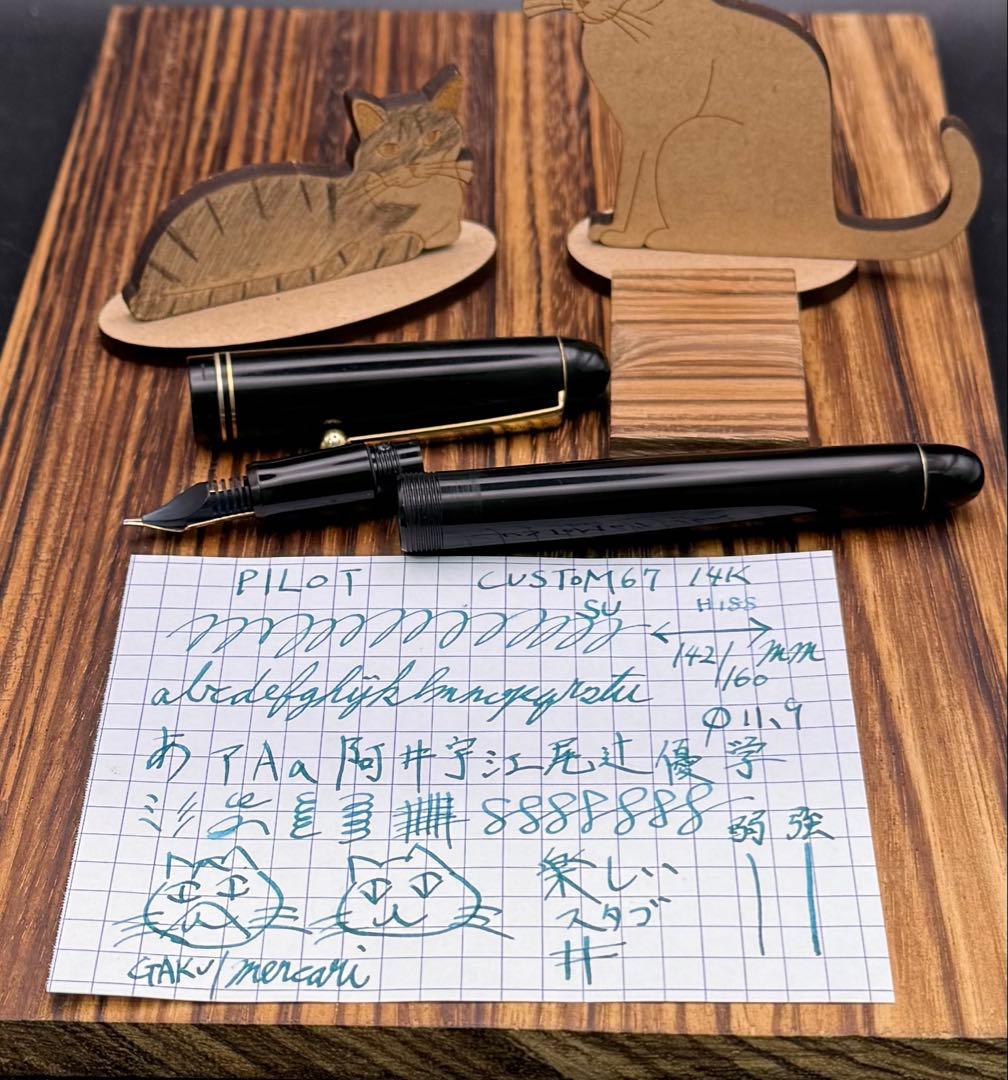 PILOT CUSTOM67 14K
SU H188
142/160 mm
abcdefghijklmnopqrstu
φ11.9
あ ア A a 阿 井 宇 江 尾 辻 優 学
弱 強
楽しい
スタブ
GAKU/mercari